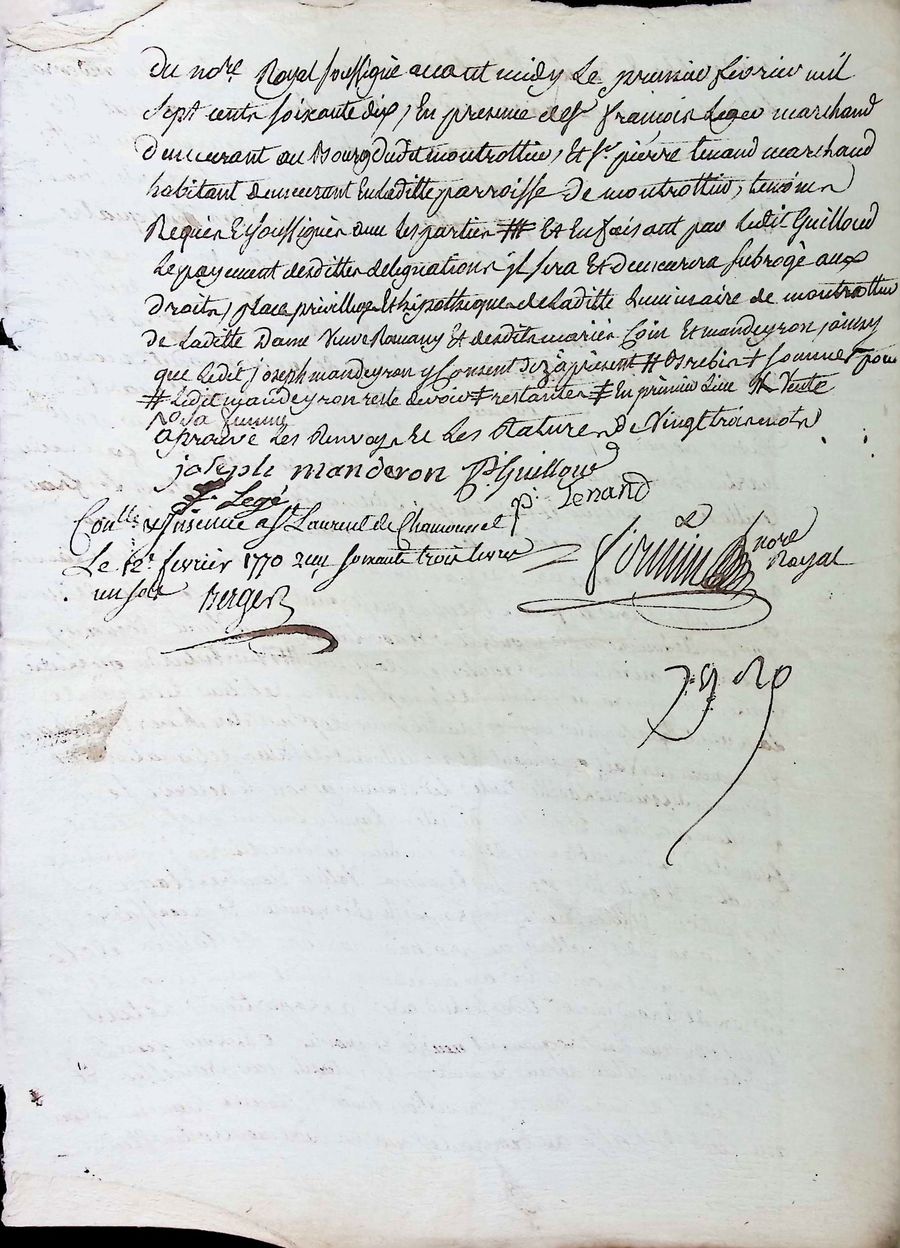 du no.re Royal soussigné avant midy le premier fevrier mil
sept cents soixante dix, En presence de sr francois Legee marchand
demeurant au Bourg dudit montrottier, Et sr. pierre tenand marchand
habitant demeurant En laditte parroisse de montrottier, temoins
Requis Et soussignés avec les parties # Et En faisant par ledit Guilloud
Le payement desdittes delegations jl sera Et demeurera subrogé aux
droits, place privillege Et hipotheque de laditte Luminaire de montrottier
de laditte Dame Veuve Romany Et desdits mariés Coin Et mandeyron
que ledit joseph mandeyron y Consent dez à present #
# Ledit mandeyron reste devoir ‡ restantes ‡ En premier Lieu # Vente
sa femme
aprouvé les Renvoys Et les Ratures de Vingt trois mots
joseph manderon P. Guilloud
f. Legé p. Tenand
Conlle Et Insinué a St. Laurent de Chamousset
Le 12e. fevrier 1770 reçu soixante trois livres
un sols Berger
no.re
Royal